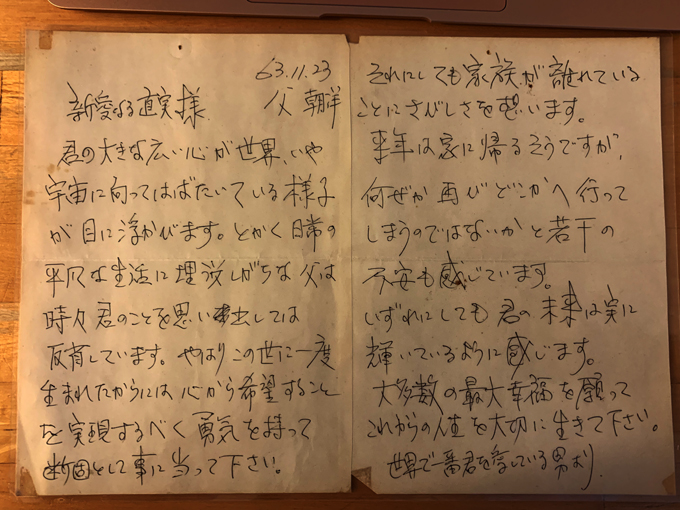 63.11.23
新愛なる直実様 父 朝洋
君の大きな広い心が世界、いや
宇宙に向ってはばたいている様子
が目に浮かびます。とかく日常の
平凡な生活に埋没しがちな父は
時々君のことを思い出しては
反省しています。やはりこの世に一度
生まれたからには心から希望すること
を実現するべく勇気を持って
断固として事に当って下さい。
それにしても家族が離れている
ことにさびしさを思います。
来年は家に帰るそうですが、
何ぜか再びどこかへ行って
しまうのではないかと若干の
不安も感じています。
いずれにしても君の未来は実に
輝いているように感じます。
大多数の最大幸福を願って
これからの人生を大切に生きて下さい。
世界で一番君を愛している男より